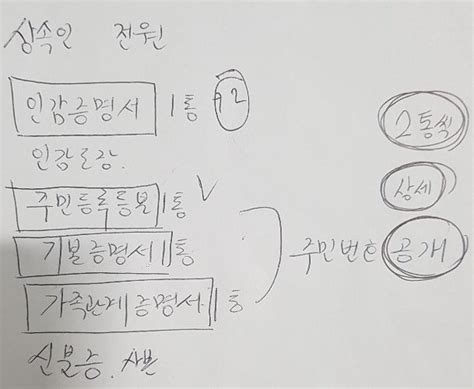 상속인 전원
인감증명서 1통 2
2통씩
인감도장.
상세
주민등록등본 1통 V
기본증명서 1통
주민번호 공개
가족관계증명서 1통
신분증. 사본